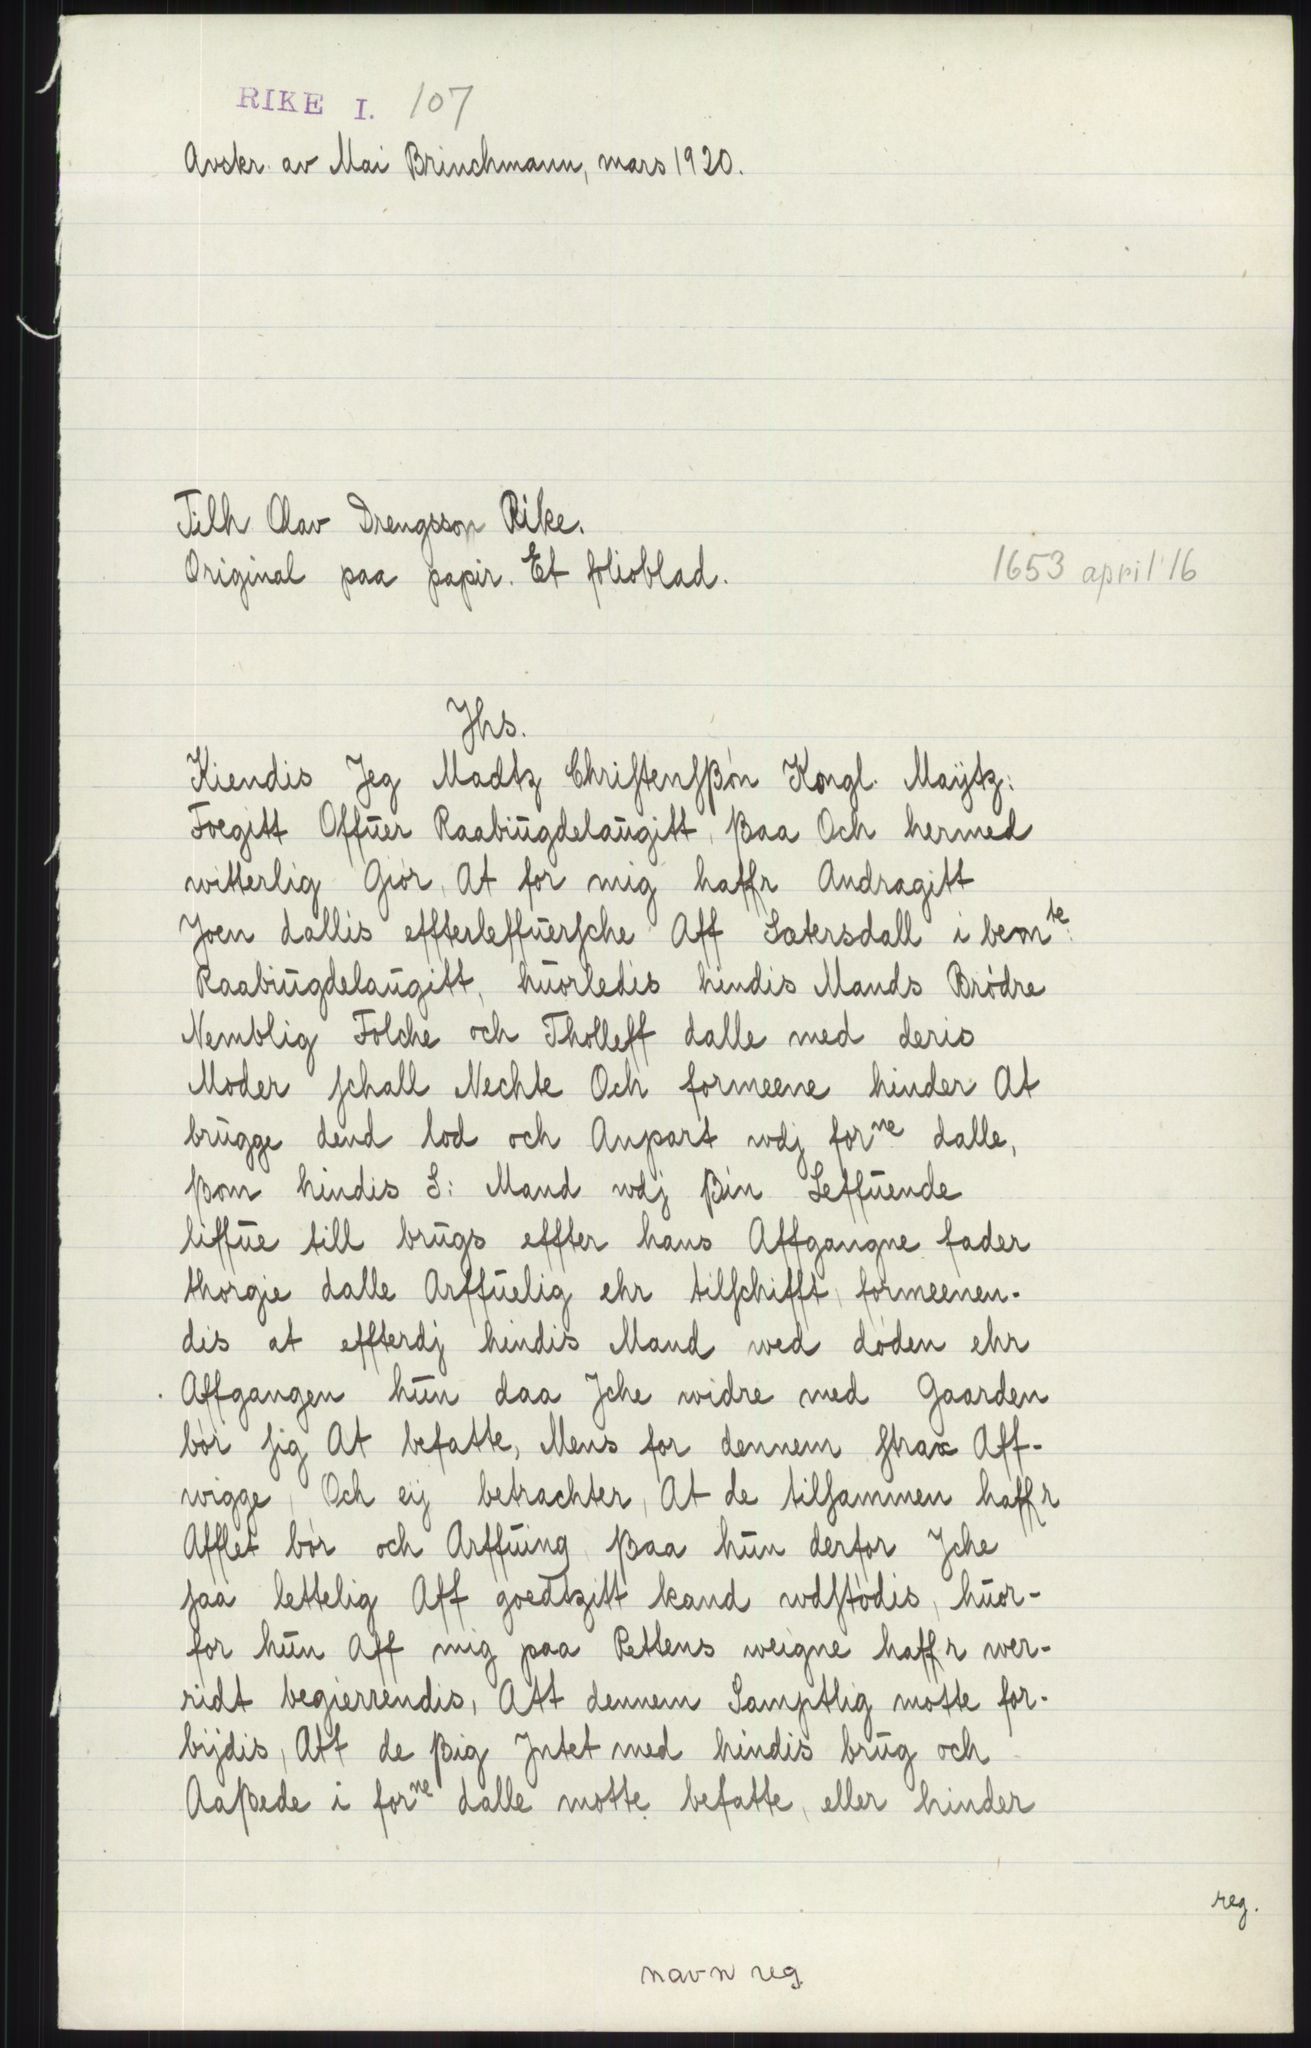 RIKE I. 107
Avskr. av Mai Brinchmann, mars 1920.
Tilh. Olav Drengsson Rike.
Original paa papir. Et folioblad.
1653 april 16
Jhs.
Kiendis Jeg Madtz Chriſtenſßón Kongl. Maÿtz:
Foegitt Offŭer Raabiŭgdelaŭgitt, ßaa Och hermed
witterlig Giór, At for mig haffr Andragitt
Joen dallis effterleffŭerſche Aff Sætersdall i bemte:
Raabiŭgdelaŭgitt, hŭorledis hindis Mands Bródre
Nemblig Folche och Tholleff dalle med deris
Moder ſchall Nechte Och formeene hinder At
brŭgge dend lod och Anpart wdj forne dalle,
ßom hindis S: Mand wdj ßin Leffŭende
liffŭe till brŭgs effter hans Affgangne fader
thorgie dalle Arffŭelig ehr tilſchifft, formeenen-
dis at effterdj hindis Mand wed dóden ehr
Affgangen hŭn daa Jche widre med Gaarden
bór ſig At befatte, Mens for dennem ſtrax Aff-
wigge, Och eij betrachter, At de tilſammen haffr
Afflet bór och Arffŭing ßaa hŭn derfor Jche
ſaa lettelig Aff goedtzitt kand wdſtódis, hŭor-
for hŭn Aff mig paa Rettens weigne haffr wer-
ridt begierrendis, Att dennem Samptlig motte for-
bijdis, Att de ßig Jntet med hindis brŭg och
Aaßede i forne dalle motte befatte, eller hinder
reg.
navn reg